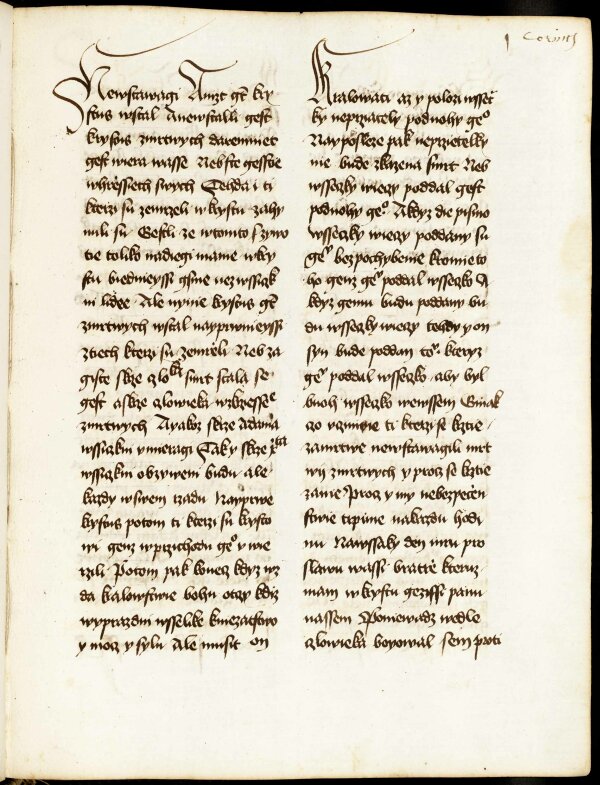 j Corint3
Newstawagi Anizt gt kry
stus wstal Anewstalli gest
krystus zmrtwych daremniet
gest wiera wasse Neb ste gesstie
whrziessiech swych Tehda i ti
kterzi su zemrzeli w krystu zahy
nuli su Gestli ze w tomto zywo
tie toliko nadiegi mame w kry
stu biedneyssi gsme nez wssick
ni lidee Ale wnie krystus gt
zmrtwych wstal nayprwnieyssi
ztiech kterzi su zemrzeli Neb za
giste skrze czlowieka smrt stala se
gest a skrze czlowieka wzkrziessenie
zmrtwych Ayakoz skrze Adama
wssickni umieragi Taky skrze xta
wssickni obzyweni budu ale
kazdy wswem rzadu Nayprwe
krystus potom ti kterzi su krysto
wi genz wprzichodu geo y wie
rzili Potom pak konecz kdyz wz
da kralowstwie bohu otczy kdiz
wyprazdni wsselike kniezatstwo
y mocz y sylu Ale musit on
Kralowati az y polozi wssec
ky neprziately podnohy geo
Nayposleze pak neprzietelky
nie bude zkazena smrt Neb
wsseczky wieczy poddal gest
podnohy geo A kdyz die pismo
wsseczky wieczy poddany su
geo bez pochybenie kromie to
ho genz geo poddal wsseczko A
kdyz gemu budu poddany bu
du wsseczky wieczy tehdy y on
syn bude poddan to kteryz
geo poddal wsseczko aby byl
buoh wsseczko wewssem Ginak
czo ucznie ti kterzi se krztie
zamrtwe newstawagili mrt
wij zmrtwych y procz se krztie
zanie Procz y my nebezpeczen
stwie trpime nakazdu hodi
nu Nawssaky den mru pro
slawu wassi bratrzie kteruz
mam w krystu gezissi panu
nassem Poniewadz wedle
czlowieka boyowal sem proti